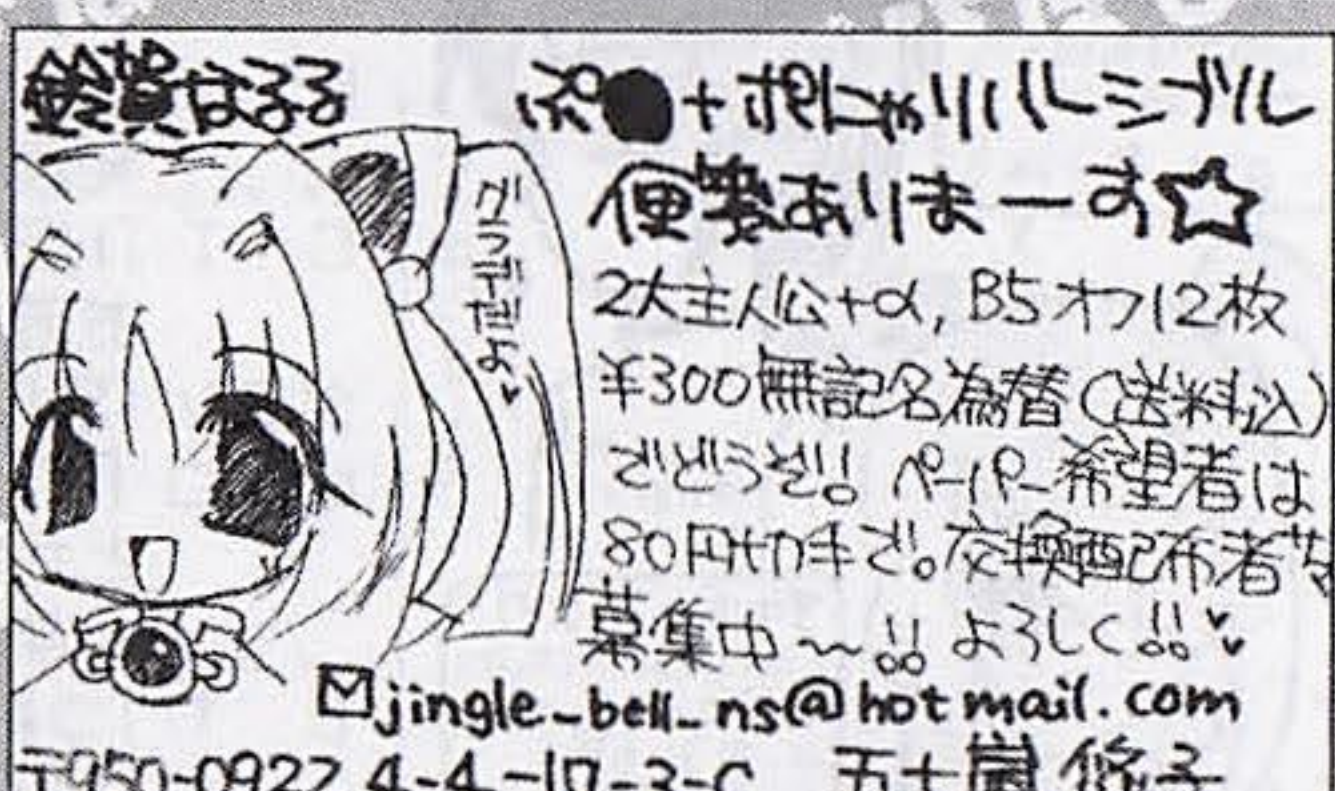 鈴賀なるる
ぷ●+ポにゃリバーシブル
便箋ありまーす☆
ゲラゲラだよ♥
2大主人公+α, B5オフ12枚
¥300無記名為替(送料込)
でどうぞ!! ペーパー希望者は
80円切手で。交換配布者等
募集中〜!! よろしく!!♥
jingle_bell_ns@hotmail.com
〒950-0922 4-4-17-3-C 五十嵐 悠子